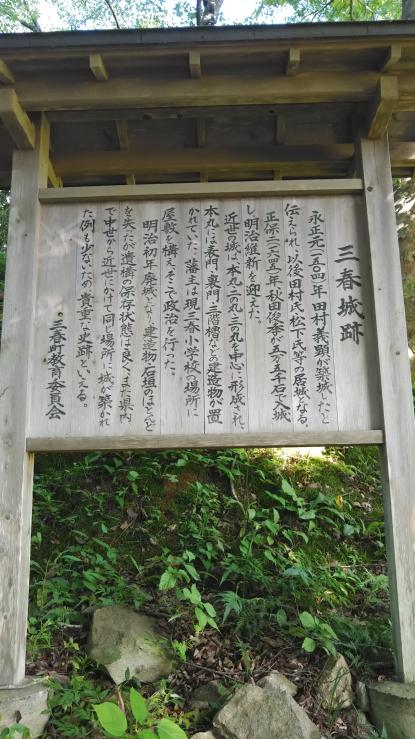 三春城跡
永正元(一五〇四)年、田村義顕が築城したと
伝えられ、以後田村氏、松下氏等の居城となる。
正保二(一六四五)年、秋田俊季が五万五千石で入城
し、明治維新を迎えた。
近世の城は、本丸、二の丸、三の丸を中心に形成され、
本丸には表門、裏門、三階櫓などの建造物が置
かれていた。藩主は現三春小学校の場所に
屋敷を構え、そこで政治を行った。
明治初年、廃城となり、建造物、石垣のほとんど
を失たが、遺構の保存状態は良く、また県内
で中世から近世にかけて同じ場所に城が築かれ
た例も少ないため、貴重な史跡といえる。
三春町教育委員会